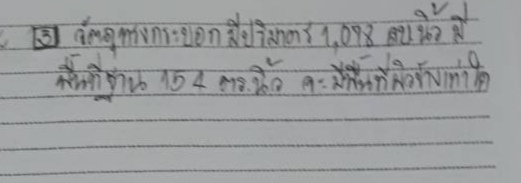 3 วัตถุทรงกระบอก มีปริมาตร 1,078 ลบ.นิ้ว มี
พื้นที่ฐาน 154 ตร.นิ้ว จะมีพื้นที่ผิวข้างเท่าใด